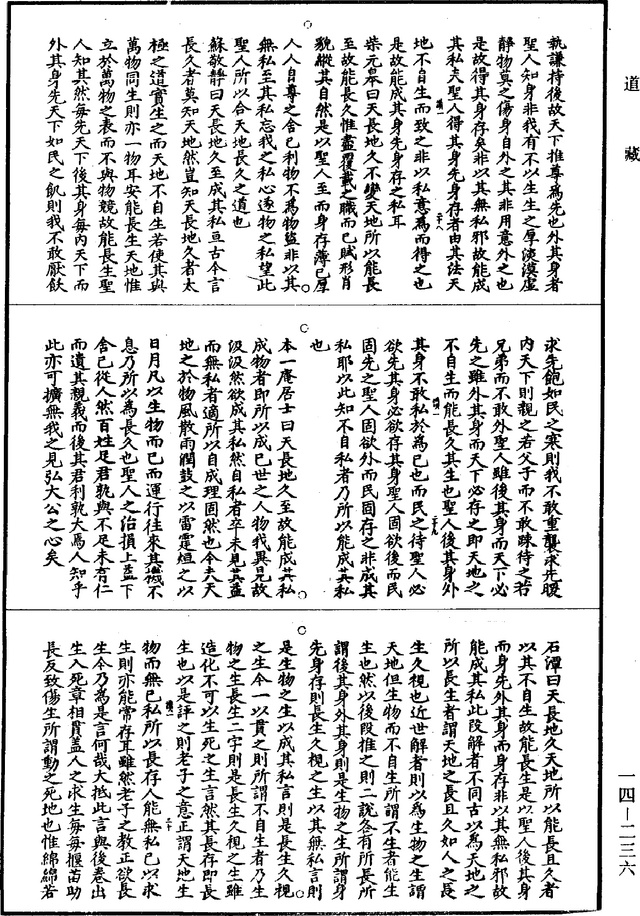 道藏
執謙持後故天下推尊為先也外其身者
聖人知身非我有不以生生之厚淡漠虛
靜物莫之傷身自外之其非用意外之也
是故得其身存矣非以其無私邪故能成
其私夫聖人得其身先身存者由其法天
地不自生而致之非以私意為而得之也
是故能成其身先身存之私耳
柴元皋曰天長地久不變天地所以能長
至故能長久惟盡覆載之職而已賦形肖
貌縱其自然是以聖人至而身存薄已厚
人人自尊之舍已利物不為物盬非以其
無私至其私忘我之私心遂物之私望此
聖人所以合天地長久之道也
蘇敬靜曰天長地久至成其私亘古今言
長久者莫如天地然豈知天長地久者太
極之道實生之而天地不自生若使其與
萬物同生則亦一物耳安能長生天地惟
立於萬物之表而不與物競故能長生聖
人知其然每先天下後其身每內天下而
外其身先天下如民之飢則我不敢厭飫
求先飽如民之寒則我不敢重襲求先暖
內天下則親之若父子而不敢疎待之若
兄弟而不敢外聖人雖後其身而天下必
先之雖外其身而天下必存之即天地之
不自生而能長久其生也聖人後其身外
其身不敢私於為已也而民之待聖人必
欲先其身必欲存其身聖人固欲後而民
固先之聖人固欲外而民固存之非成其
私耶以此知不自私者乃所以能成其私
也
本一庵居士曰天長地久至故能成其私
成物者即所以成已世之人物我異見故
汲汲然欲成其私然自私者卒未見其益
而無私者適所以自成理固然也今夫天
地之於物風散雨潤鼓之以雷霆烜之以
日月凡以生物而已而運行往來其機不
息乃所以為長久也聖人之治損上益下
舍已從人然百姓足君孰與不足未有仁
而遺其親義而後其君利孰大焉人知乎
此亦可擴無我之見弘大公之心矣
石潭曰天長地久天地所以能長且久者
以其不自生故能長生是以聖人後其身
而身先外其身而身存非以其無私邪故
能成其私此段解者不同古以為天地之
所以長生者謂天地之長且久如人之長
生久視也近世解者則以為生物之生謂
天地但生物而不自生所謂不生者能生
生也然以後段推之則二說各有所長所
謂後其身外其身則是生物之生所謂身
先身存則長生久視之生以其無私言則
是生物之生以成其私言則是長生久視
之生今一以貫之則所謂不自生者乃生
物之生長生二字則是長生久視之生雖
造化不可以生死之生言然其長存即長
生也以是評之則老子之意正謂天地生
物而無已私所以長存人能無私已以求
生則亦能常存耳雖然老子之教正欲長
生今乃為是言何哉大抵此言與後卷出
生入死章相貫蓋人之求生每每揠苗助
長反致傷生所謂動之死地也惟綿綿若
一四—二三六